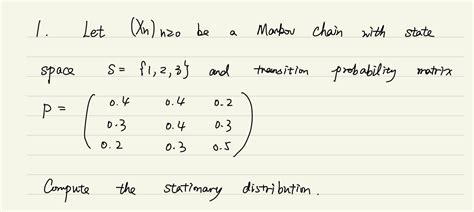 1. Let (Xn)n≥0 be a Markov chain with state
space S = {1, 2, 3} and transition probability matrix
P = ( 0.4 0.4 0.2
0.3 0.4 0.3
0.2 0.3 0.5 )
Compute the stationary distribution.